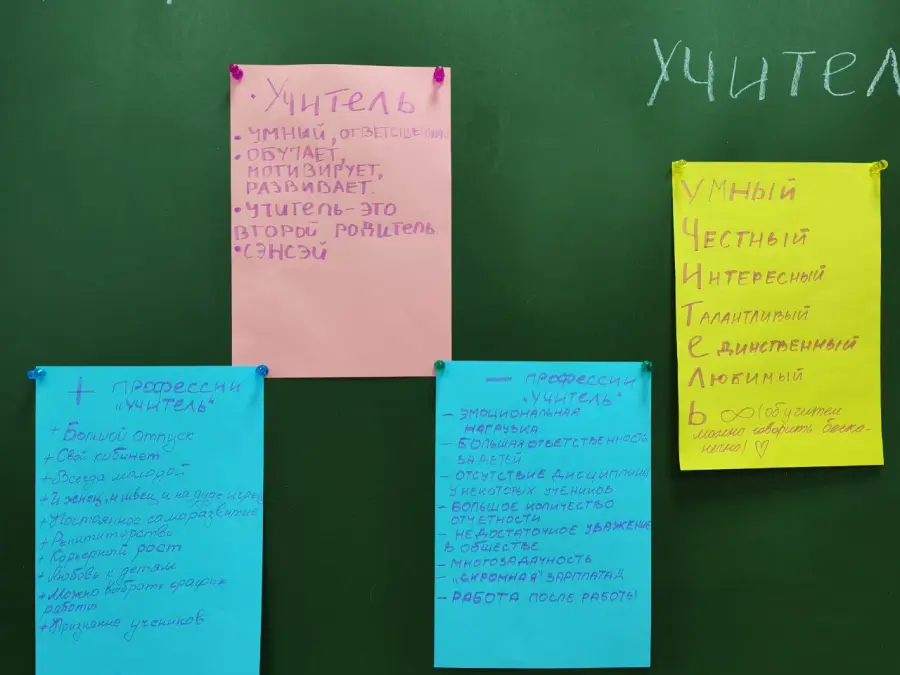 Учител
• Учитель
• УМНЫЙ, ОТВЕТСТВЕНН.
• ОБУЧАЕТ,
МОТИВИРУЕТ,
РАЗВИВАЕТ.
• УЧИТЕЛЬ-ЭТО
ВТОРОЙ РОДИТЕЛЬ
• СЭНСЭЙ
УМНЫЙ
ЧЕСТНЫЙ
ИНТЕРЕСНЫЙ
ТАЛАНТЛИВЫЙ
ЕДИНСТВЕННЫЙ
ЛЮБИМЫЙ
Ь ∞ (об учителе
можно говорить беско-
нечно) ♡
+ ПРОФЕССИИ
„УЧИТЕЛЬ"
+ Большой отпуск
+ Свой кабинет
+ Всегда молодой
+ И жнец, и швец, и на дуде игрец
+ Постоянное саморазвитие
+ Репититорство
+ Карьерный рост
+ Любовь к детям
+ Можно выбрать график
работы
+ Признание учеников
— ПРОФЕССИИ
„УЧИТЕЛЬ"
- ЭМОЦИОНАЛЬНАЯ
НАГРУЗКА
- БОЛЬШАЯ ОТВЕТСТВЕННОСТЬ
ЗА ДЕТЕЙ
- ОТСУТСТВИЕ ДИСЦИПЛИНЫ
У НЕКОТОРЫХ УЧЕНИКОВ
- БОЛЬШОЕ КОЛИЧЕСТВО
ОТЧЕТНОСТИ
- НЕДОСТАТОЧНОЕ УВАЖЕНИЕ
В ОБЩЕСТВЕ
- МНОГОЗАДАЧНОСТЬ
- „СКРОМНАЯ" ЗАРПЛАТА
- РАБОТА ПОСЛЕ РАБОТЫ